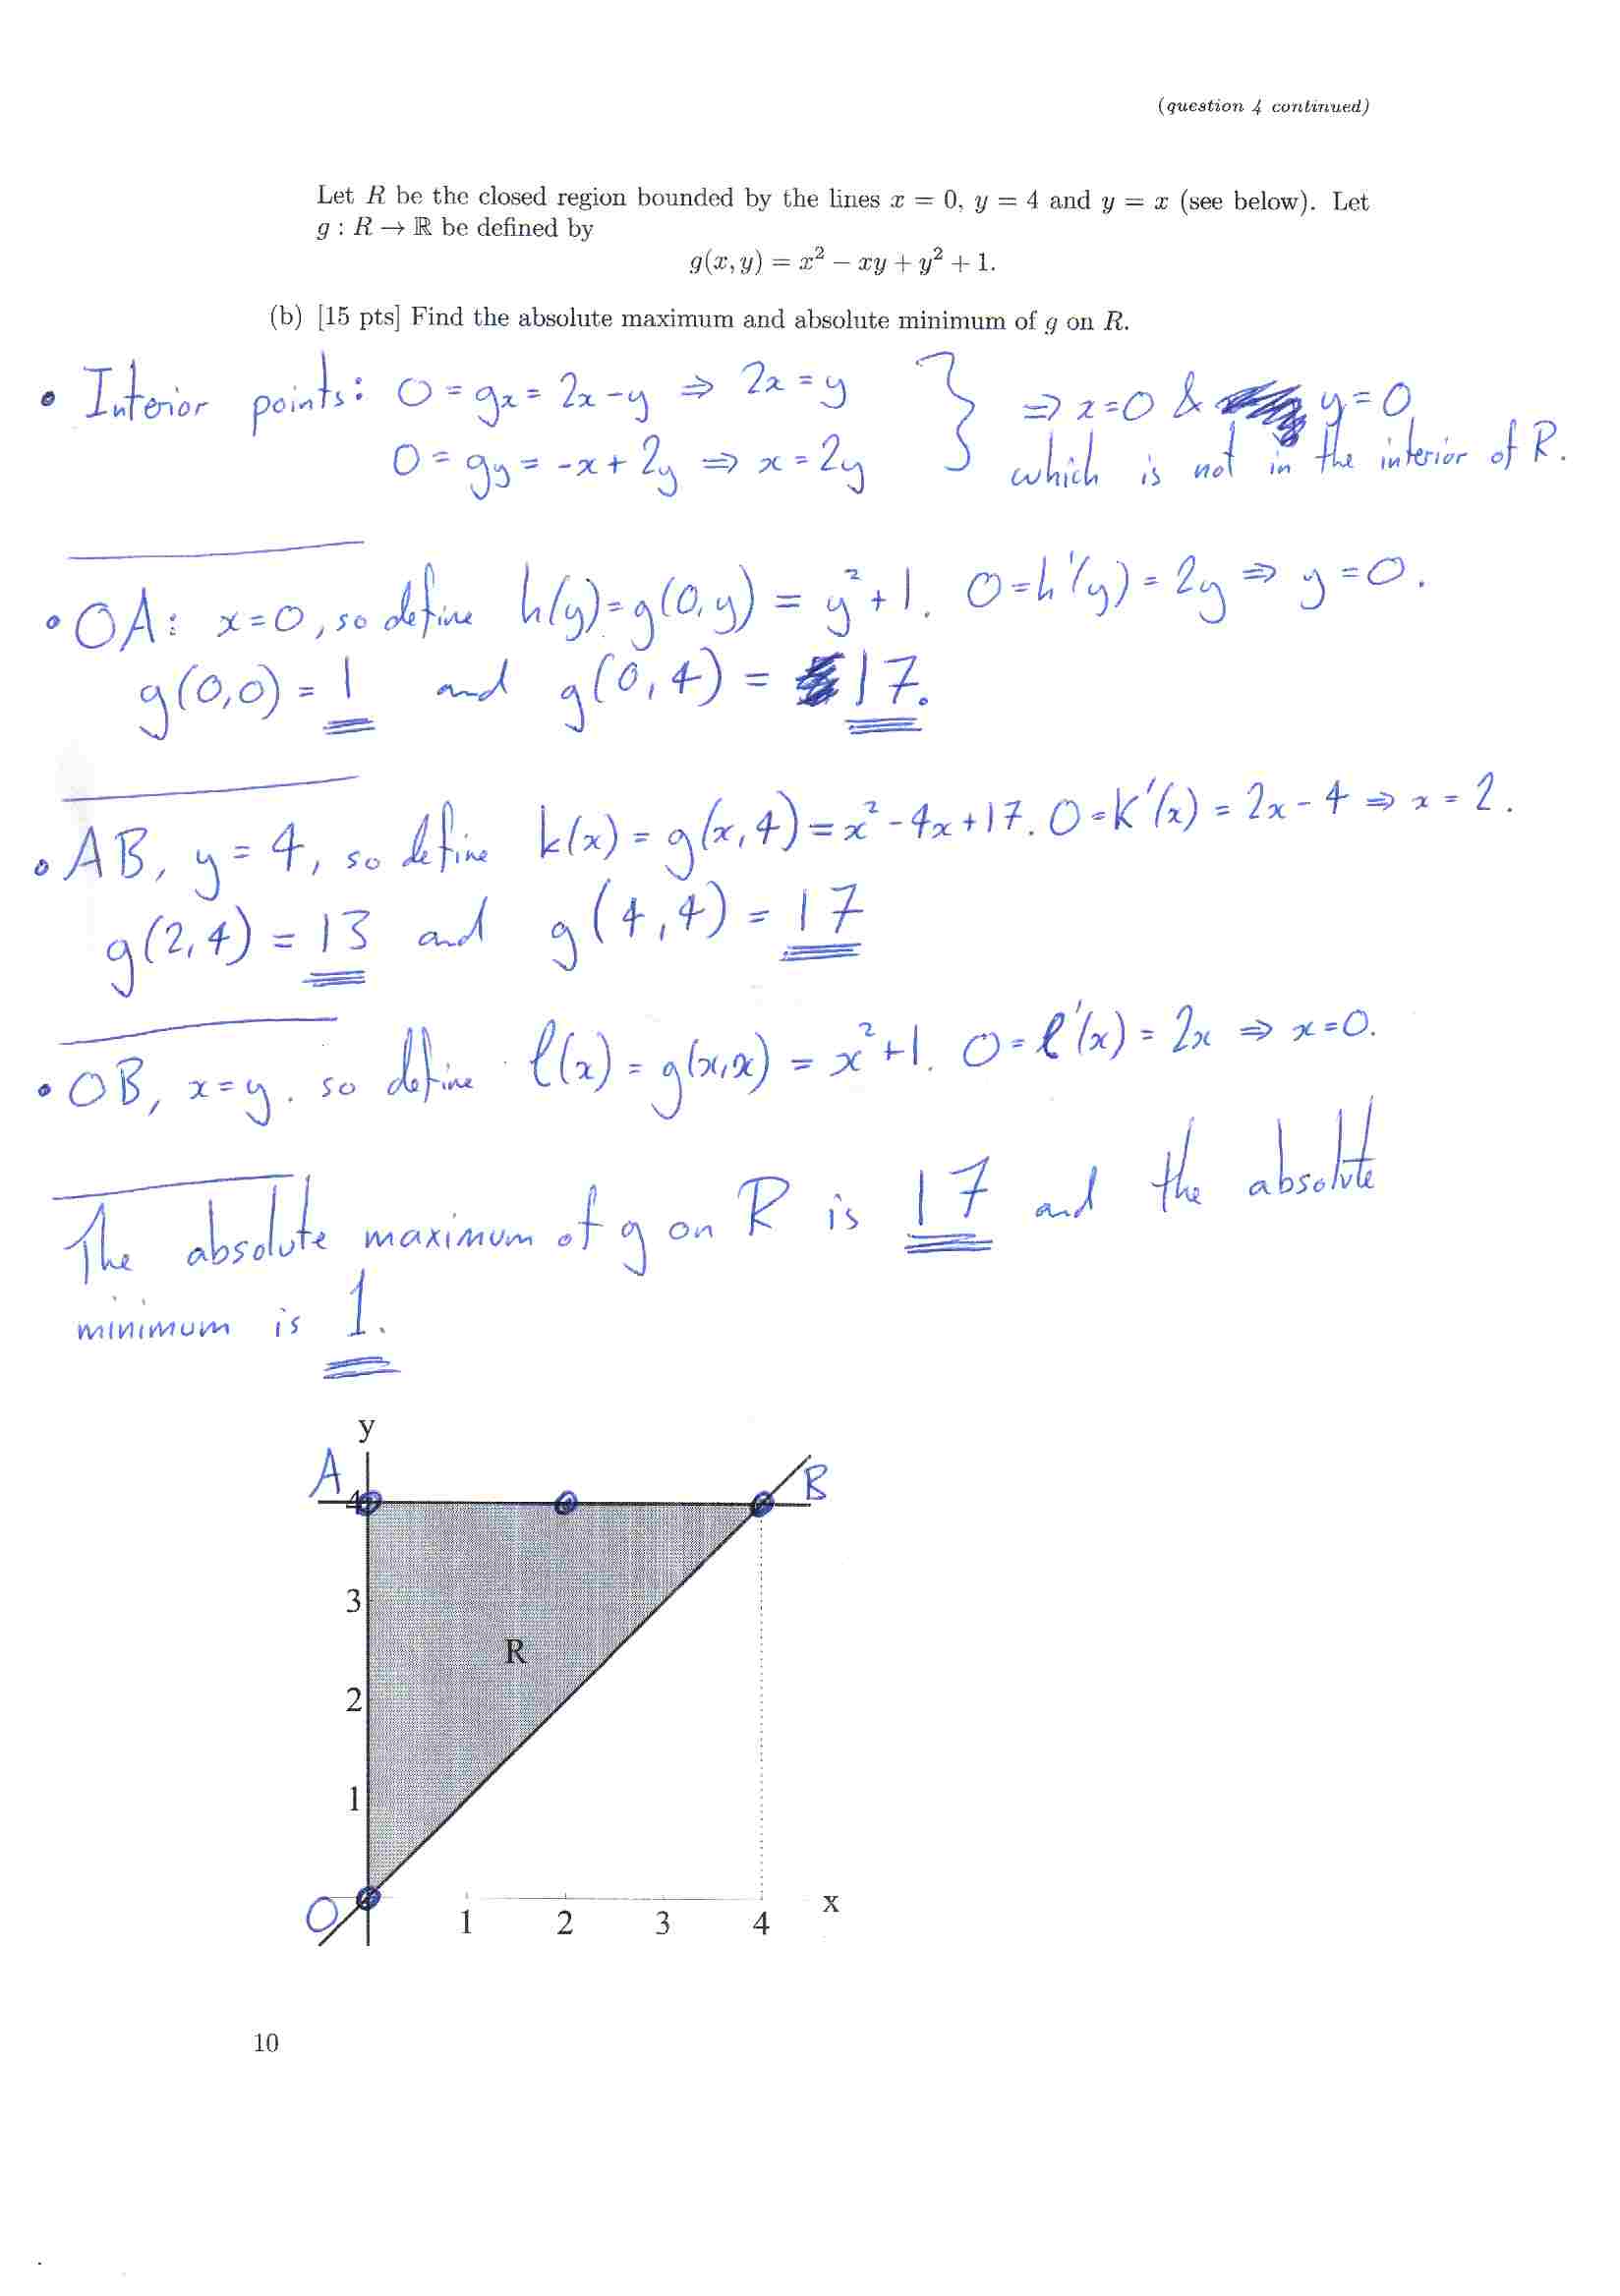 (question 4 continued)
Let R be the closed region bounded by the lines x = 0, y = 4 and y = x (see below). Let
g : R → ℝ be defined by
g(x, y) = x² − xy + y² + 1.
(b) [15 pts] Find the absolute maximum and absolute minimum of g on R.
• Interior points: 0 = gx = 2x - y ⇒ 2x = y
0 = gy = -x + 2y ⇒ x = 2y
} ⇒ x=0 & y=0
which is not in the interior of R.
• OA: x=0, so define h(y) = g(0,y) = y² + 1. 0 = h'(y) = 2y ⇒ y = 0.
g(0,0) = 1 and g(0,4) = 17.
• AB, y = 4, so define k(x) = g(x,4) = x² - 4x + 17. 0 = k'(x) = 2x - 4 ⇒ x = 2.
g(2,4) = 13 and g(4,4) = 17
• OB, x=y. so define ℓ(x) = g(x,x) = x² + 1. 0 = ℓ'(x) = 2x ⇒ x=0.
The absolute maximum of g on R is 17 and the absolute
minimum is 1.
y
A
4
B
3
R
2
1
O
x
1 2 3 4
10